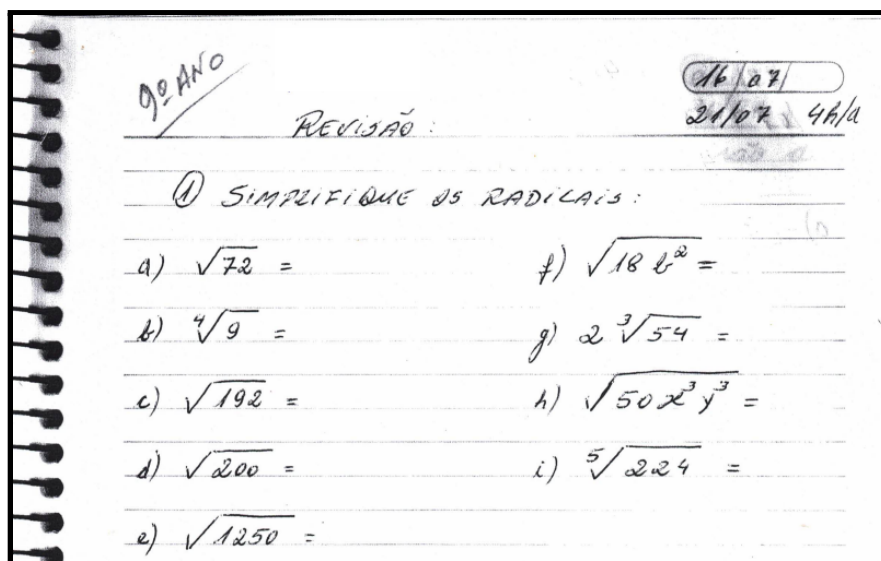 9º ANO
16/07/
21/07 4h/a
REVISÃO:
① SIMPLIFIQUE OS RADICAIS:
a) √72 =
b) ⁴√9 =
c) √192 =
d) √200 =
e) √1250 =
f) √18 b² =
g) 2 ³√54 =
h) √50x³y³ =
i) ⁵√224 =